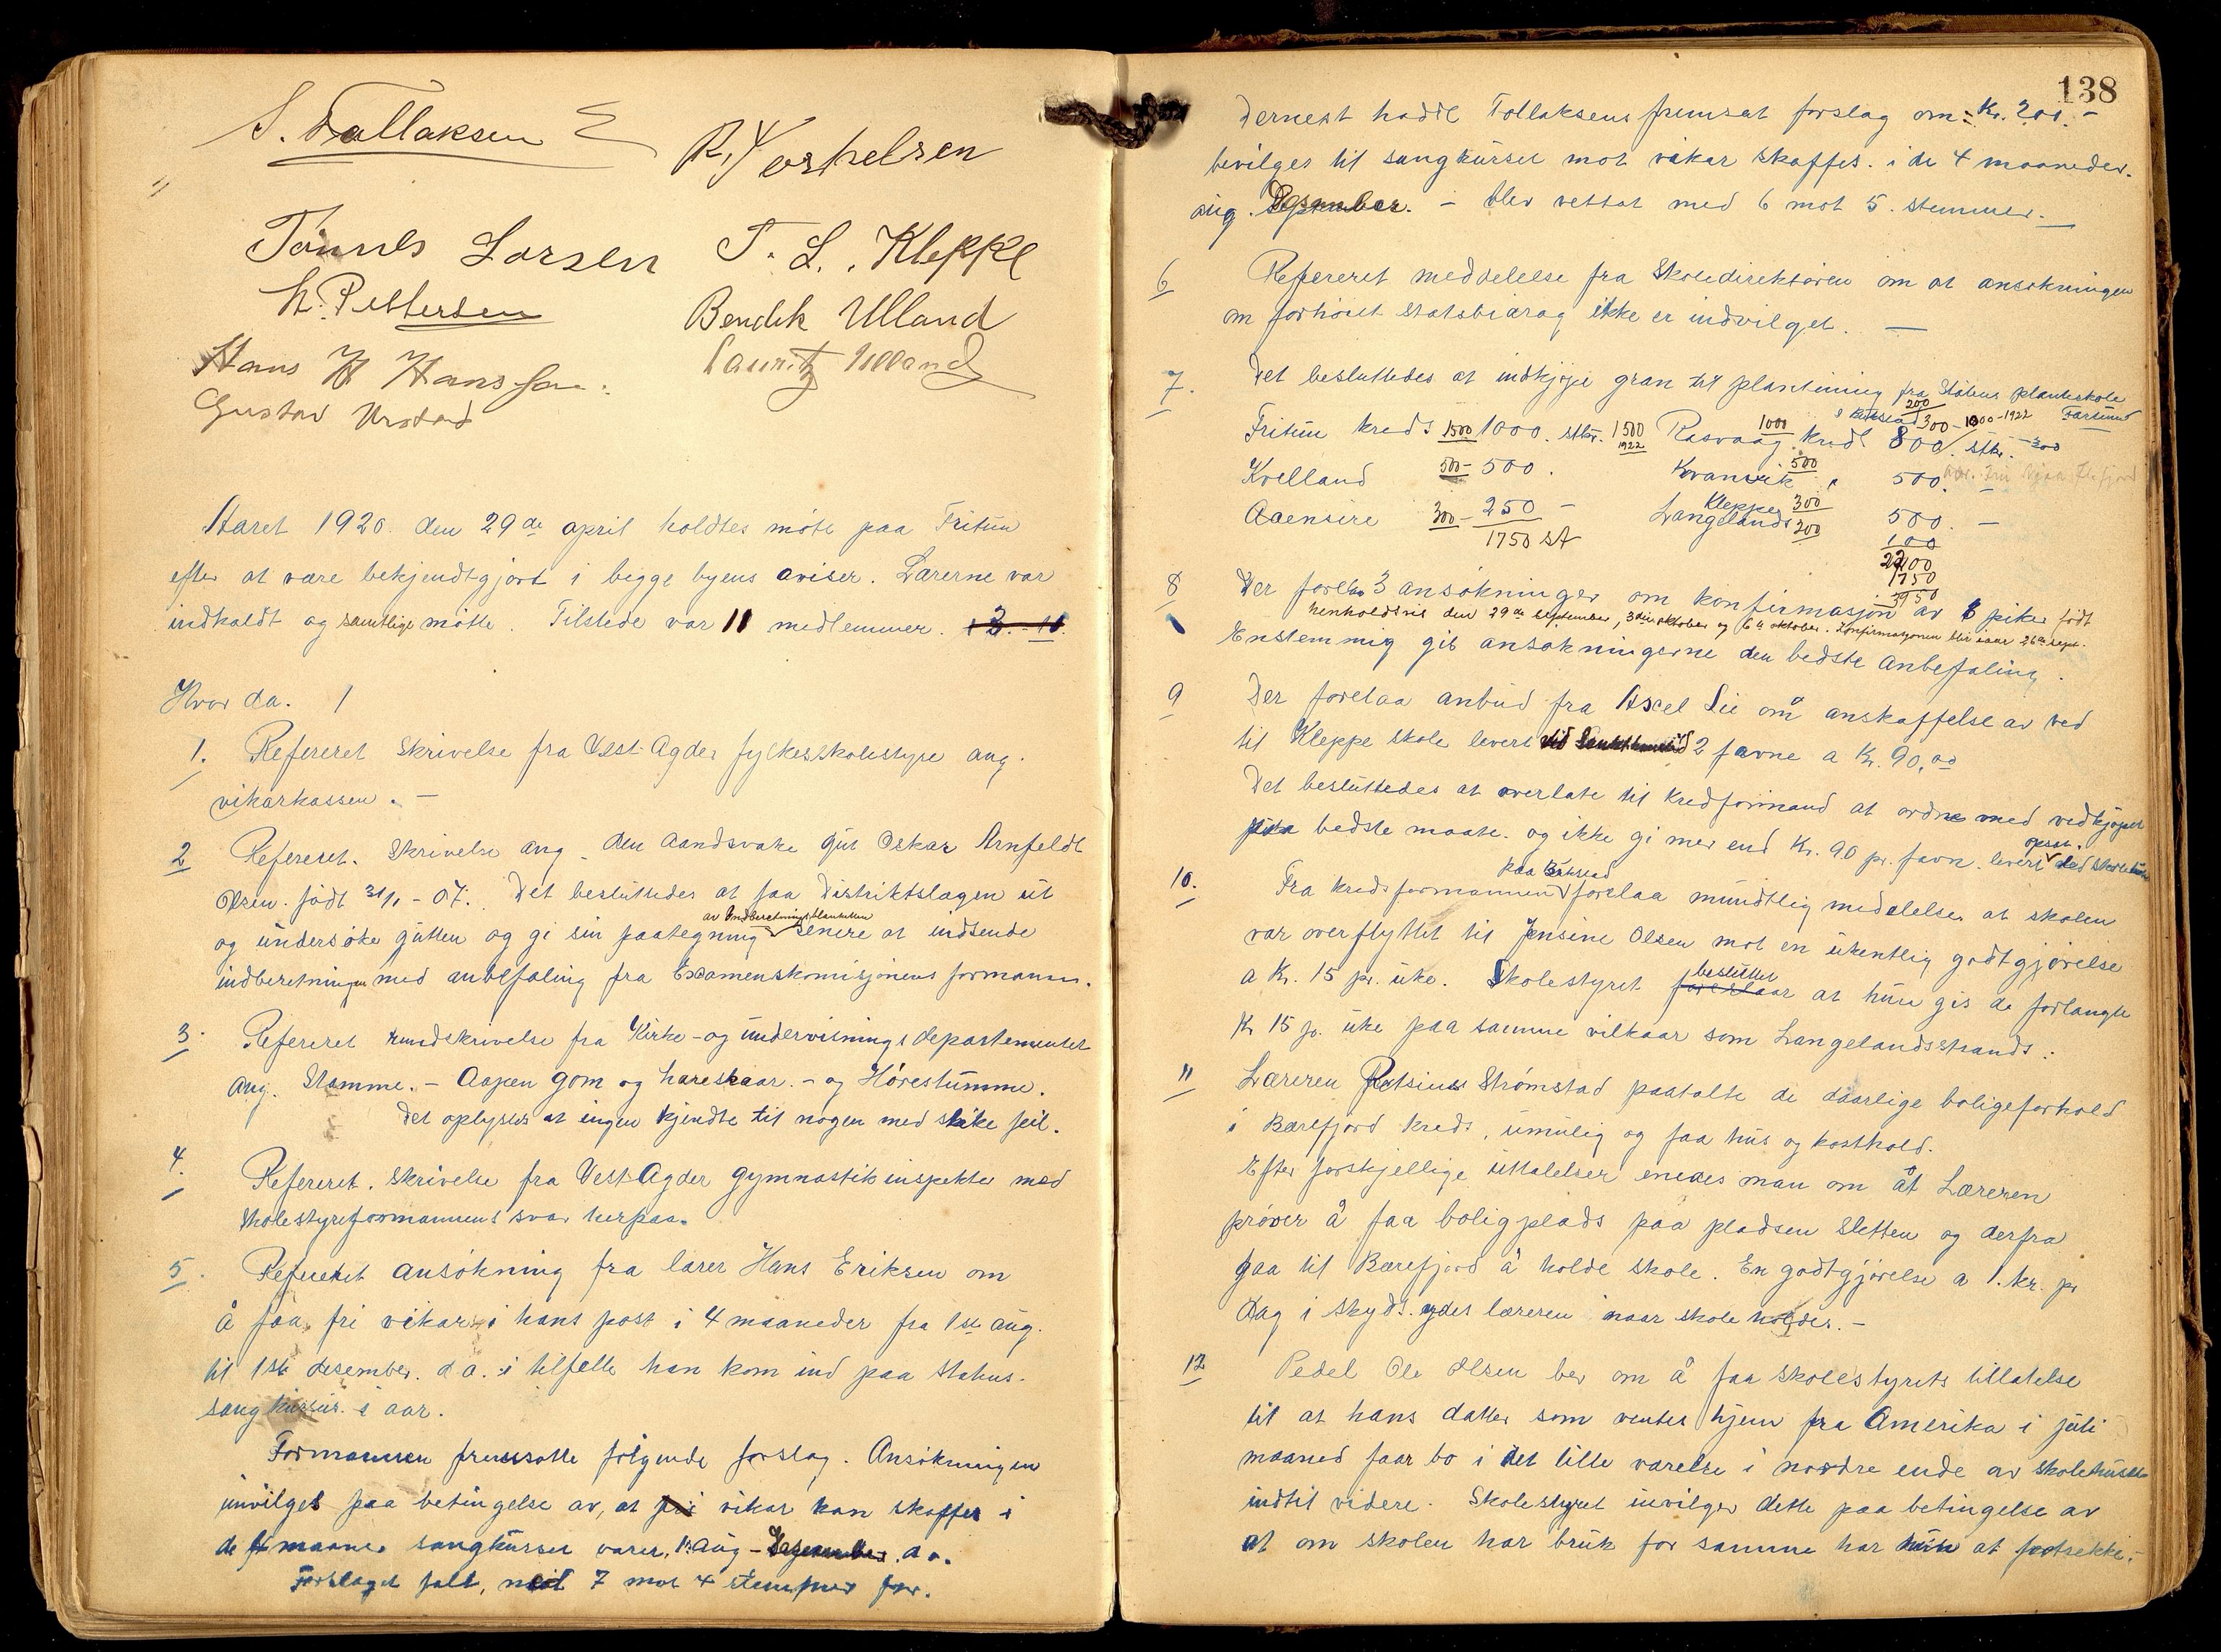 S. Tallaksen
R. Torkelsen
Tønnes Larsen T. L. Kleppe
L. Pettersen
Bendik Ulland
Hans H Hanssen
Lauritz Ulland
Gustav Urstad
Aaret 1920. den 29de april holdtes møte paa Fritun
efter at være bekjendtgjort i begge byens aviser. Lærerne var
indkaldt og samtlige møtte. Tilstede var 11 medlemmer.
Hvor da.
1. Refereret Skrivelse fra Vest-Agder fylkesskolestyre ang.
vikarkassen. –
2 Refereret. Skrivelse ang. den aandsvake gut Oskar Arnfeldt
Olsen. født 31/1 - 07. Det besluttedes at faa Distriktslægen ut
av Indberetningsblanketten
og undersøke gutten og gi sin paategning senere at indsende
indberetningen med anbefaling fra Examenskomisjonens formann.
3. Refereret rundskrivelse fra Kirke- og undervisningsdepartementet
ang. Stamme. – Aapen gom og hareskaar. – og Hørestumme.
Det oplystes at ingen kjendte til nogen med slike feil.
4. Refereret. Skrivelse fra Vest-Agder gymnastikinspektør med
skolestyreformannens svar herpaa.
5. Refereret ansøkning fra lærer Hans Eriksen om
å faa fri vikar i hans post i 4 maaneder fra 1ste aug.
til 1ste desember. d a. i tilfelle han kom ind paa statens.
sangkursus. i aar.
Formannen fremsatte følgende forslag. Ansøkningen
invilges paa betingelse av, at fri vikar kan skaffes i
de 4 maaner sangkurset varer, 1. aug – Desember d. a.
Forslaget falt, mot 7 mot 4 stemmer for.
138
Dernest hadde Tollaksens fremsat forslag om: Kr. 200. –
bevilges til sangkurset mot vikar skaffes. i de 4 maaneder.
aug. Desember. – blev vettat med 6 mot 5. stemmer. –
6 Refereret meddelelse fra Skoledirektøren om at ansøkningen
om forhøiet statsbidrag ikke er indvilget. –
7. Det besluttedes at indkjøpe gran til plantning fra Statens planteskole
200
300 – 1000 – 1922 Farsund
Fritun kreds 1500 1000. stkr. 1500 1922 Rasvaag kreds 1000 800. stkr.
Kvelland 500 – 500. Kvanvik 500 500. –
Aaensire 300 – 250 – Kleppe 300
Langelands 200 500. –
1750 st 100
2200
1750
3950
8 Der forelaa 3 ansøkninger om konfirmasjon av piker født
henholdsvis den 29de September, 3die oktober og 6te oktober. Konfirmasjonen blir iaar 26de sept.
Enstemmig gis ansøkningerne den bedste anbefaling.
9 Der forelaa anbud fra Axel Lie om anskaffelse av ved
til Kleppe skole levert 2 favne a Kr. 90,00
Det besluttedes at overlate til kredsformand at ordne med vedkjøpet
paa bedste maate. og ikke gi mer end Kr. 90 pr. favn. levert opsat. ved skolehuset
paa Briseid
10. Fra kredsformannen forelaa mundtlig meddelelse, at skolen
var overflyttet til Jensine Olsen mot en ukentlig godtgjørelse
a Kr. 15 pr. uke. Skolestyret foreslaar beslutter at hun gis de forlangte
Kr 15 pr. uke paa samme vilkaar som Langelandsstrands.
11 Læreren Retsius Strømstad paatalte de daarlige boligeforhold
i Bærefjord kreds, umulig og faa hus og kosthold.
Efter forskjellige uttalelser enedes man om åt Læreren
prøver å faa boligplads paa pladsen Sletten og derfra
gaa til Bærefjord å holde skole. En godtgjørelse a 1. kr. pr
dag i skyds. ydes læreren naar skole holdes. –
12 Pedel Ole Olsen ber om å faa skolestyrets tillatelse
til at hans datter som ventes hjem fra Amerika i juli
maaned faar bo i det lille værelse i nordre ende av skolehuset
indtil videre. Skolestyret invilger dette paa betingelse av
at om skolen har bruk for samme har hun at fratrække.